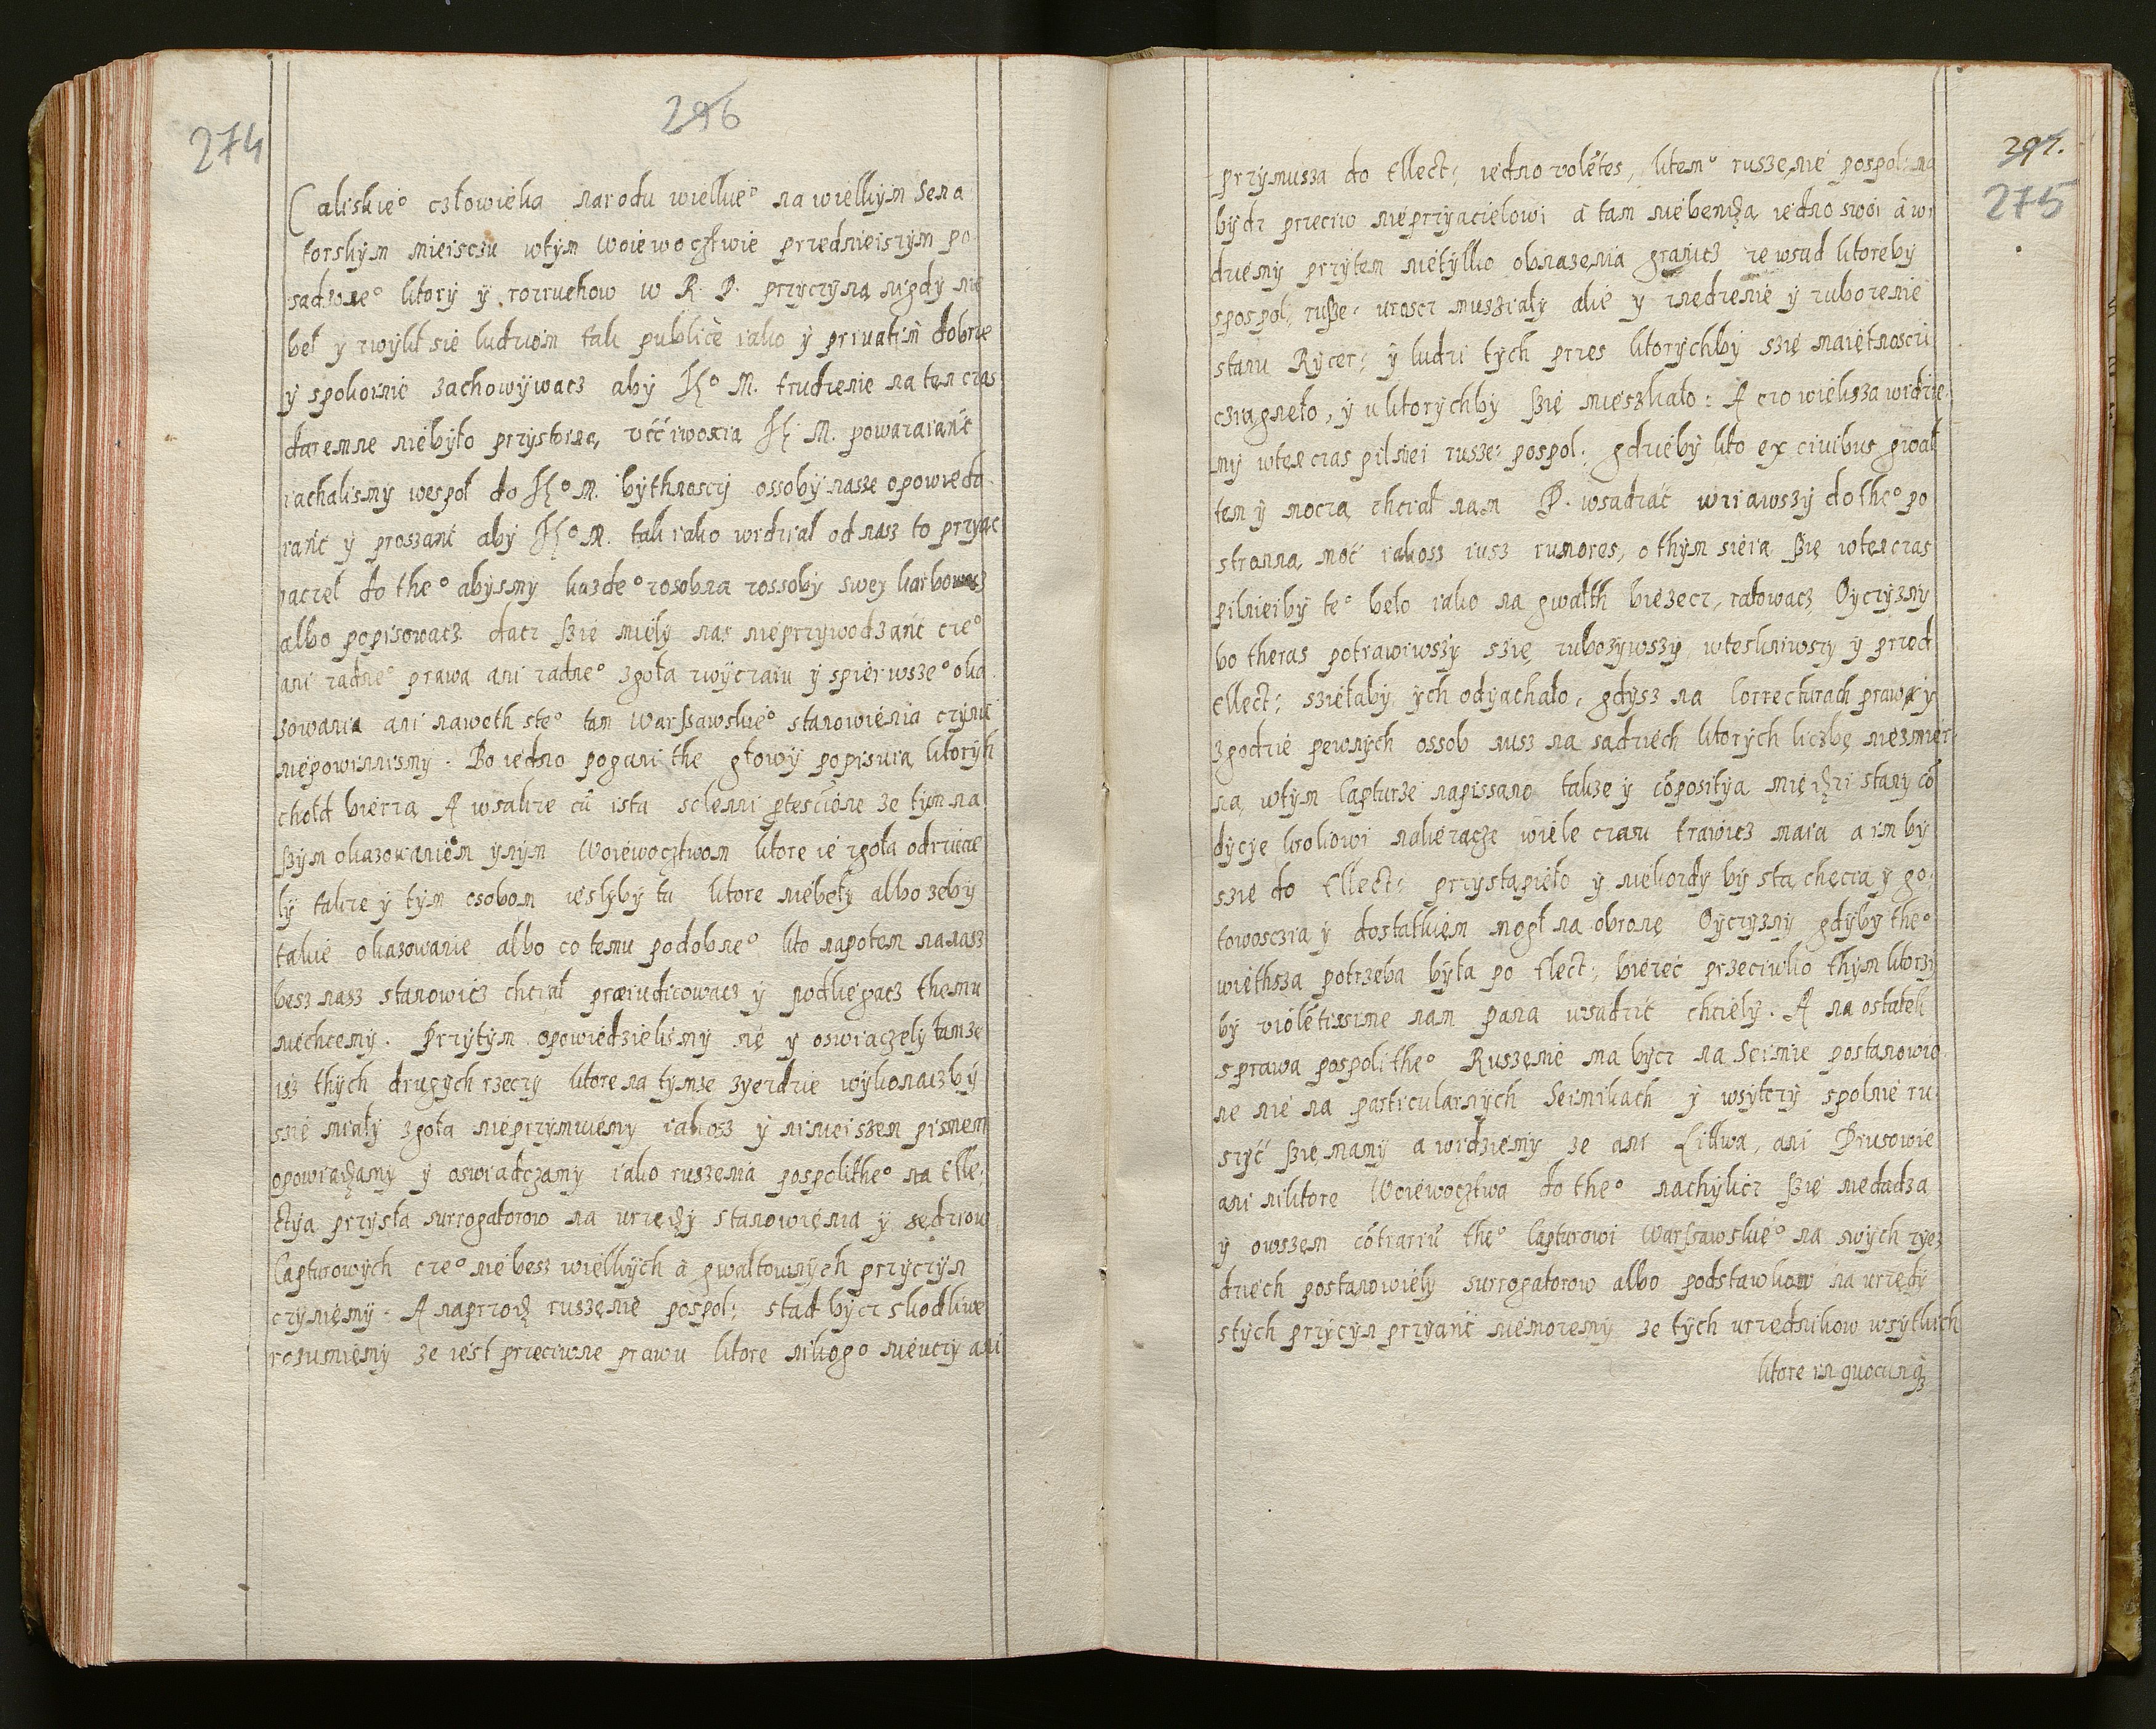 296
274
Caliskie° człowieka narodu wielkie° na wielkim Sena
torskym mieisczu wtym woiewocztwie przednieiszym po
sadzone° ktory y rozruchow w R. P. przyczyna nigdy nie
beł y zwykł sie ludziom tak publicè iako y priuatim dobrze
y spokoinie zachowywacz aby K° M. trudzenie na ten czas
daremne niebyło przystoiną, vććiwoscia K M. powazaiąć
iachalismy wespoł do K° M. bythnoscy ossoby nasze opowieda
iańć y proszańć aby K° M. tak iako widział od nasz to przyąc
raczeł do the° abysmy kazde° zosobna zossoby swey karbowacz
albo popisowacz dacz ßie miely nas nieprzywodzańć cze°
ani zadne° prawa ani zadne° zgoła zwyczaiu y spierwsze° oka
zowania ani naweth ste° tam Warssawskie° stanowienia czynić
niepowinnismy. Bo iedno pogani the głowy popisuią ktorych
chołd bierzą A wsakze cū ista solenni ptestione ze tym na
ßym okazowaniem ynym Woiewocztwom ktore ie zgoła odrzuca
ly takze y tym osobom iesłyby tu ktore niebeły albo zeby
takie okazowanie albo co temu podobne° kto napotem na nasz
besz nasz stanowicz chciał præiudicowacz y podlegacz themu
niechcemy. Przytym opowiedzielismy się y oswiaczely tamze
isz thych drugych rzeczy ktore na tymze zyezdzie wykonacz by
szie miały zgoła nieprzymuiemy iakosz y ninieiszem pismem
opowiadzamy y oswiadczamy iako ruszenia pospolithe° na Elle;
ctya przysła surrogatorow na vrzędy stanowienia y sędziow
Capturowych cze° niebesz wielkych a gwałtownych przyczyn
czyniemy. A naprzodz ruszenie pospol; stad bycz skodliwe
rozumiemy ze iest przeciwne prawu ktore nikogo nieuczy ani
297.
275
przymusza do Ellect; iedno volētes, ktem° ruszenie pospol: ma
bydz przeciw nieprzyacielowi à tam niebendza iedno swoi à wi
dziemy przytem nietylko obnazenia granicz ze wsad ktoreby
spospol; ruße: vroscz musziały alie y znedzenie y zubozenie
stanu Rycer; y ludzi tych przes ktorychby szię maiętnosczi
cziagneło, y u ktorychby ßię mieszkało: A czo wieksza widzie
my wtenczas pilniei rusze: pospol; gdzieby kto ex ciuibus gwał
tem y mocza chciał nam P. wsadzać wziawszy dothe° po
stronna moć iakosz iusz rumores, o thym sieia ßię wtenczas
pilnieiby te° beło iako na gwałth biezecz, ratowacz Oyczyzny
bo theras potrawiwszy szię, zubozywszy, wteskniwszy y przed
Ellect; szięłaby ych odyachało, gdysz na Correcturach prawa y
zgodzie pewnych ossob nusz na sądziech ktorych liczbę niezmier
na, wtym Capturze napissano takze y cōpositya międzi stany cō
dycye krolowi nalezacze wiele czasu trawicz maia a im by
szię do Ellect; przystapieło y niekozdy by sta chęcia y go
towosczia y dostatkiem mogł na obronę Oyczyzny gdyby the°
wiethsza potrzeba była po Elect; biezec przeciwko thym ktorzy
by violētissime nam pana wsadzić chciely. A na ostatek
sprawa pospolithe° Ruszenie ma bycz na Seimie postanowio
ne nie na particularnych Seimikach y wsytczy spolnie ru
szyć ßię mamy a widziemy ze ani Litwa, ani Prusowie
ani niktore Woiewocztwa do the° nachylicz ßię niedadza
y owszem cōtrariū the° Capturowi Warssawskie° na swych zyez
dziech postanowiely surrogatorow albo podstawkow na urzędy
stych przyczyn przyańć niemozemy ze tych vrzednikow wsytkich
ktore in quocunqz